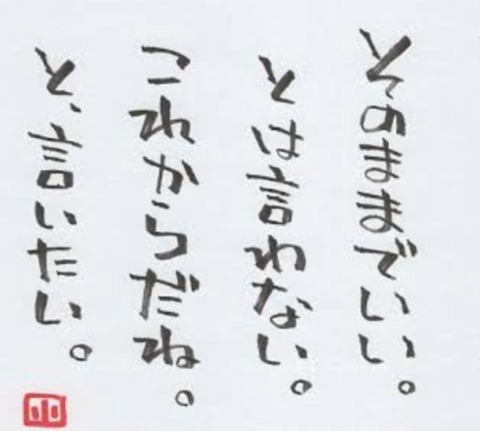 そのままでいい。
とは言わない。
これからだね。
と、言いたい。